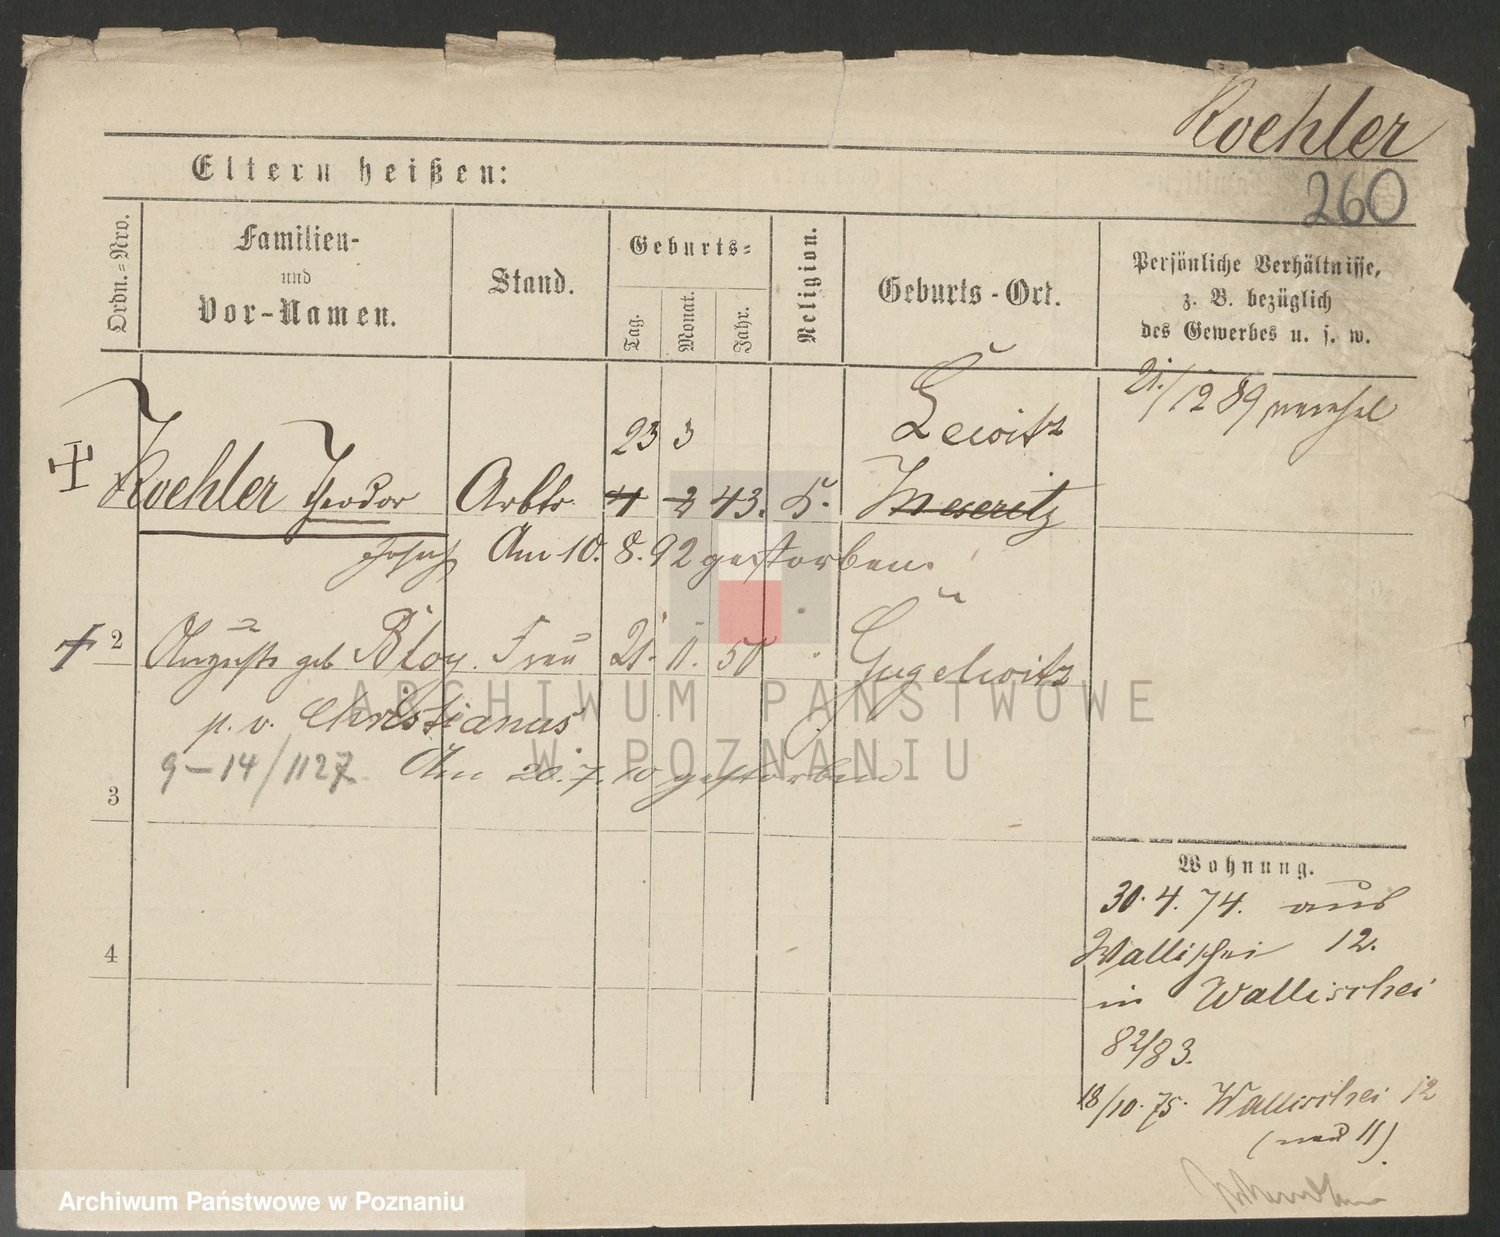 Koehler
260
Eltern heißen:
Ordn.=Nro.
Familien-
und
Vor-Namen.
Stand.
Geburts=
Tag.
Monat.
Jahr.
Religion.
Geburts-Ort.
Persönliche Verhältnisse,
z. B. bezüglich
des Gewerbes u. s. w.
21./12 89
23 3 Lewitz
Koehler Theodor Arbtr 4 2 43. Meseritz
Joseph Am 10. 8. 92 gestorben.
2 Auguste geb Bloy. Frau 21. 11. 50 Gugelwitz
p. v. Christianus
9-14/1127 Am 20. 7. 10 gestorben
3
4
Wohnung.
30. 4. 74. aus
Wallischei 12.
in Wallischei
82/83.
18/10. 75. Wallischei 12
(neu 11)
ARCHIWUM PAŃSTWOWE
W POZNANIU
Archiwum Państwowe w Poznaniu